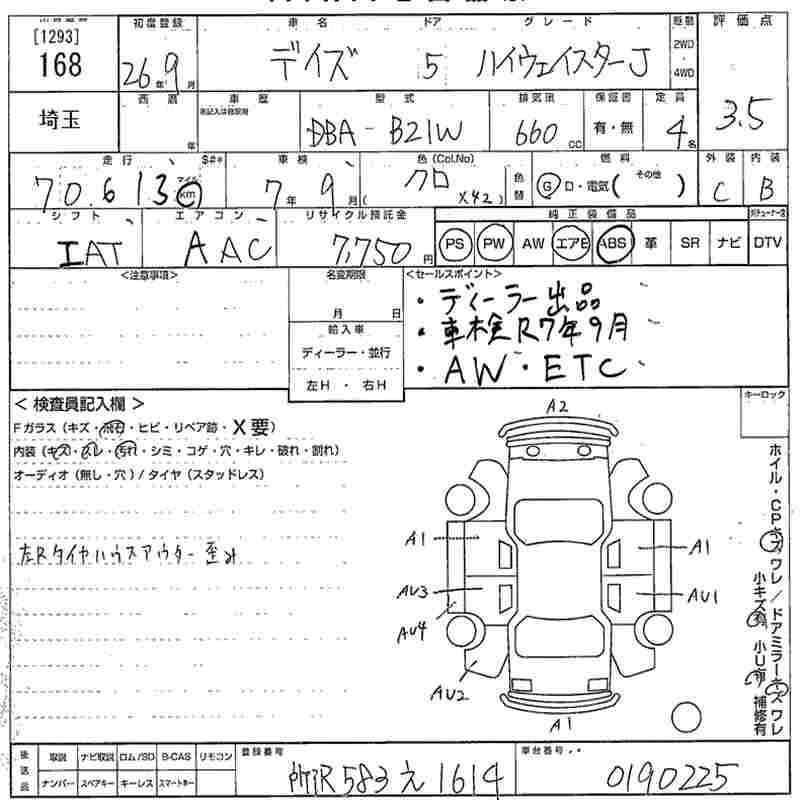 [1293]
168
初度登録 車名 ドア グレード 駆動 評価点
26年9月 デイズ 5 ハイウェイスターJ 2WD・4WD 3.5
埼玉
西暦 年 車歴 型式 排気量 保証書 定員
DBA-B21W 660cc 有・無 4名
走行 $#* 車検 色(Col.No) 燃料 外装 内装
70,613 マイル km 7年9月 クロ (X42) 色替 G D・電気 (その他) C B
シフト エアコン リサイクル預託金 純正装備品
IAT AAC 7,750円 PS PW AW エアB ABS 革 SR ナビ DTV
<注意事項> 名変期限 <セールスポイント>
月 日
輸入車
ディーラー・並行
左H ・ 右H
・ディーラー出品
・車検R7年9月
・AW・ETC
キーロック
＜検査員記入欄＞
Fガラス(キズ・飛石・ヒビ・リペア跡・X要)
内装(キズ・スレ・汚れ・シミ・コゲ・穴・キレ・破れ・割れ)
オーディオ(無し・穴)/タイヤ(スタッドレス)
左Rタイヤハウスアウター歪み
A2
A1 A1
AU3 AU1
AU4
AU2
A1
ホイル・CPキズワレ/ドアミラーキズワレ
小キズ有 小U有 補修有
後送品 取説 ナビ取説 ロム/SD B-CAS リモコン
ナンバー スペアキー キーレス スマートキー
登録番号 583 え 1614
車台番号 0190225